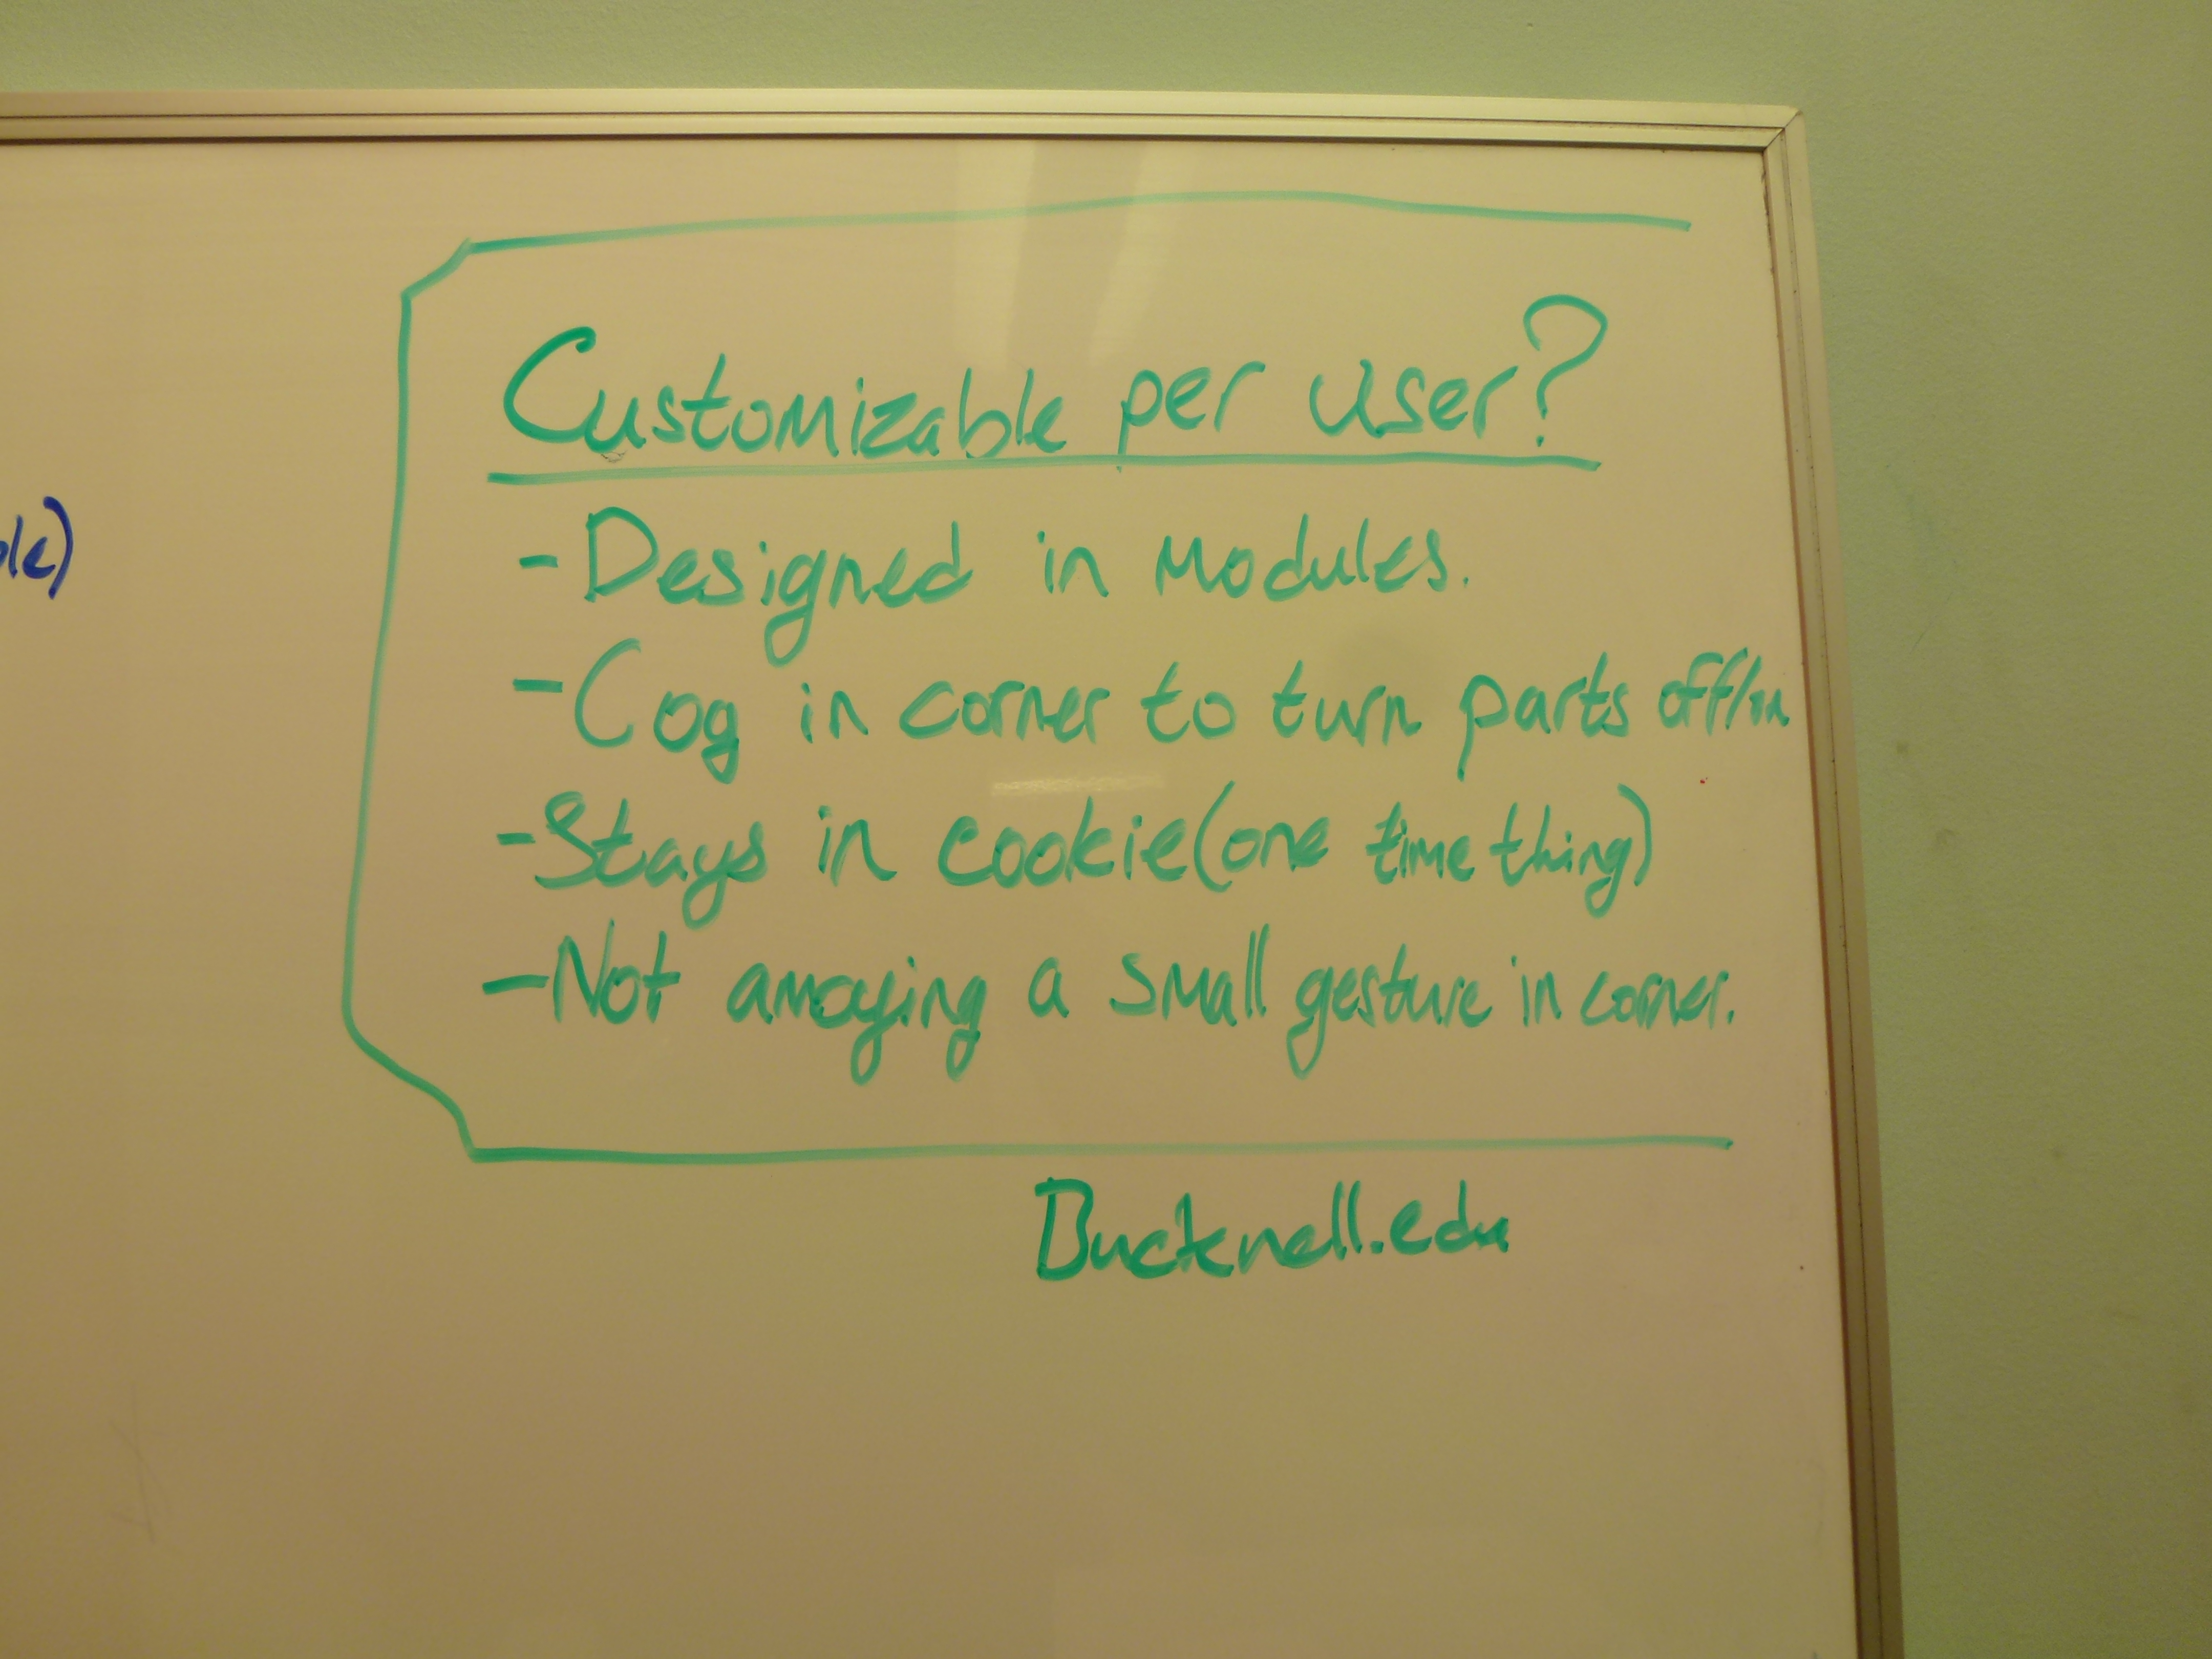 Customizable per user?
- Designed in modules.
- Cog in corner to turn parts off/on
- Stays in cookie (one time thing)
- Not annoying a small gesture in corner.
Bucknell.edu